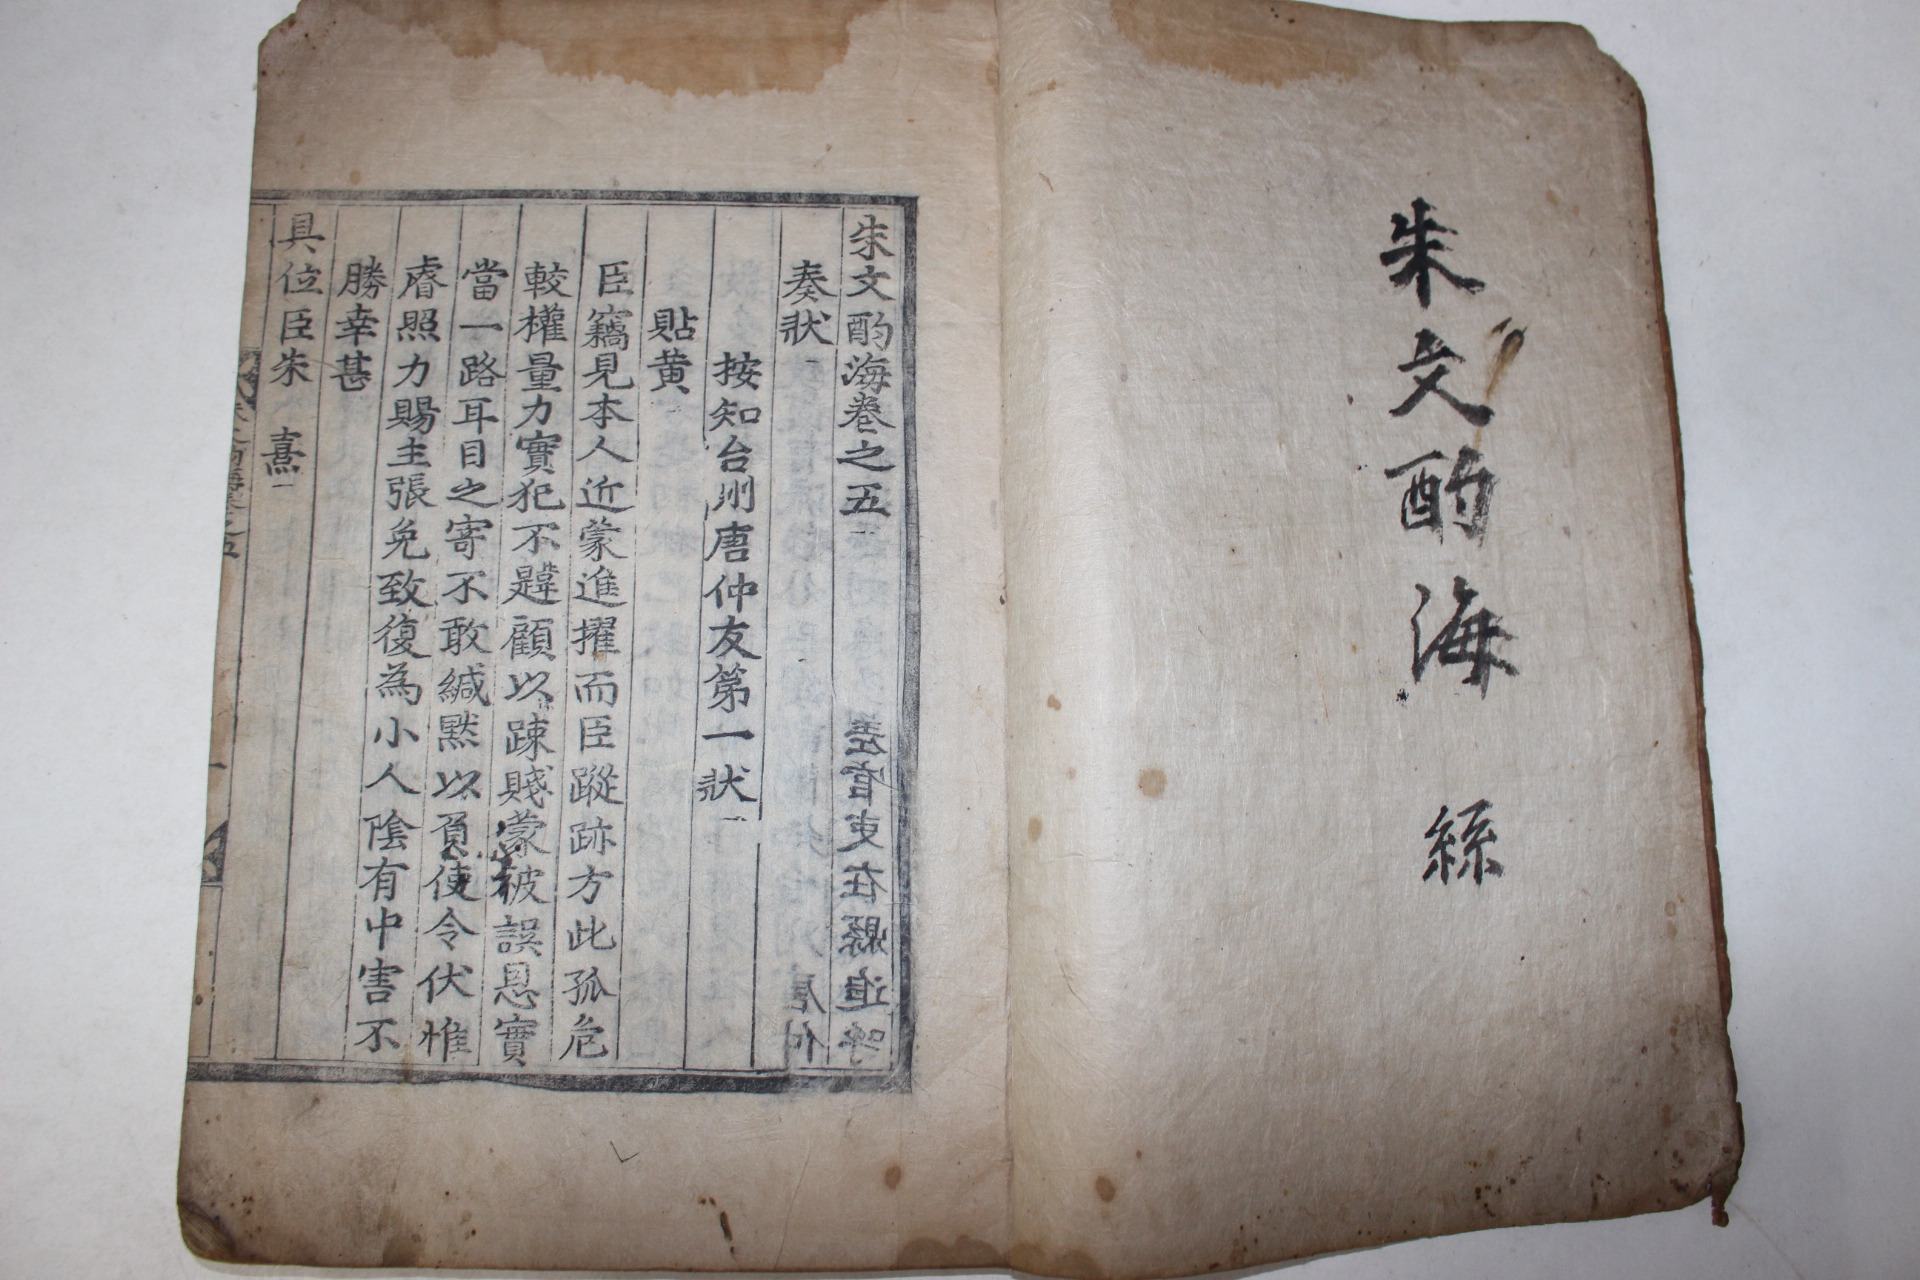 朱文酌海 絲
朱文酌海卷之五
奏狀
按知台州唐仲友第一狀
貼黄
臣竊見本人近蒙進擢而臣蹤跡方此孤危
較權量力實犯不韙顧以踈賤蒙被誤恩實
當一路耳目之寄不敢緘默以負使令伏惟
睿照力賜主張免致復為小人陰有中害不
勝幸甚
具位臣朱 熹